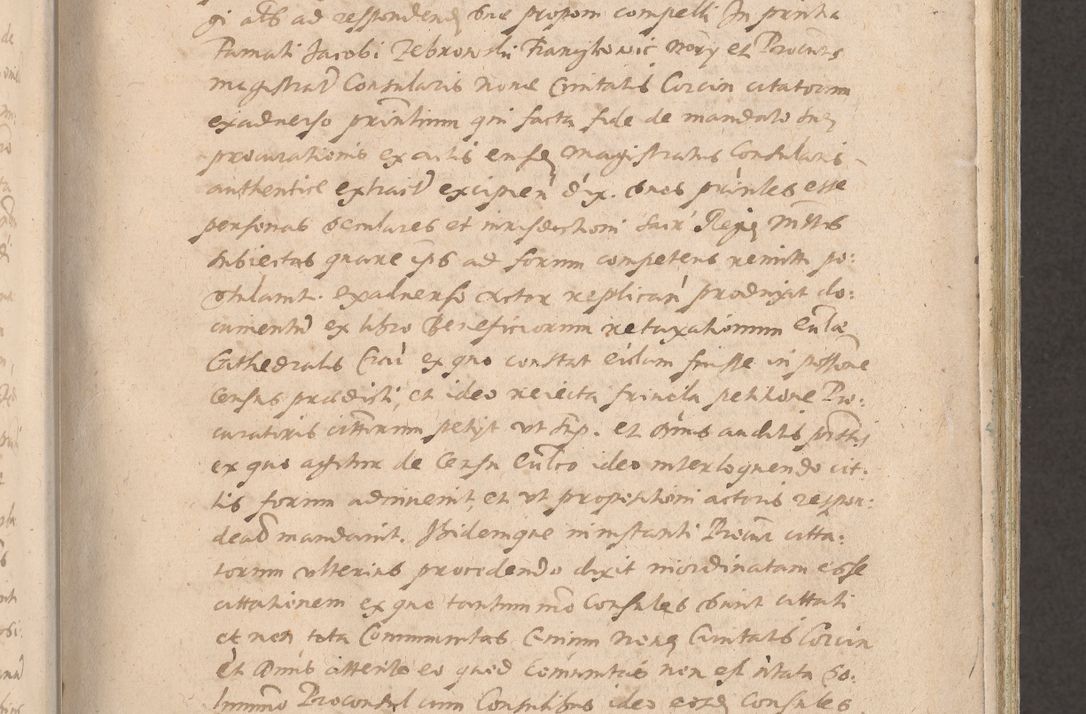 gi ad respondendū suæ proponi compelli In pñtia
Famati Jacobi Zebrowski Notarij et Procuris
magistrat9 Consularis Novæ Civitatis Corcin citatorum
ex adverso principalium qui facta fide de mandato suæ
procurationis ex actis eiusdē magistratus Consularis
authentice extract9 excipien dix. suos principales esse
personas seculares et iurisdictioni Sacræ Regiæ Mttis
subiectas quare ipsos ad forum competens remitti po:
stularunt. ex adverso Actor replicañ produxit do:
cumentū ex libro Beneficiorum retaxationum Ecclæ
Cathedralis Crac ex quo constat eidem fuisse in possone
Census prædicti, et ideo reiecta frivola petitione Pro:
curatoris cittorum petijt ut sup. et Dnus auditis partibus
ex quo agitur de Censu Ecclco ideo interloquendo cit:
tis forum adinvenit, et ut propositioni actoris respon:
deant mandavit. Ibidemque in instanti Procur citta:
torum ulterius procedendo dixit inordinatam esse
cittationem ex quo tantummo Consules sunt cittati
et non tota Communitas Civium Novæ Civitatis Corcin
et Dnus attento eo quod Comunitas non est citata so:
lummo Proconsul cum Consulibus ideo eosdē Consules